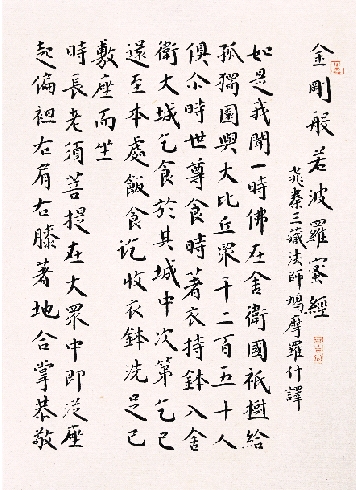 金剛般若波羅蜜經
姚秦三藏法師鳩摩羅什譯
如是我聞一時佛在舍衛國祇樹給
孤獨園與大比丘眾千二百五十人
俱尒時世尊食時著衣持鉢入舍
衛大城乞食於其城中次第乞已
還至本處飯食訖收衣鉢洗足已
敷座而坐
時長老須菩提在大眾中即從座
起偏袒右肩右膝著地合掌恭敬